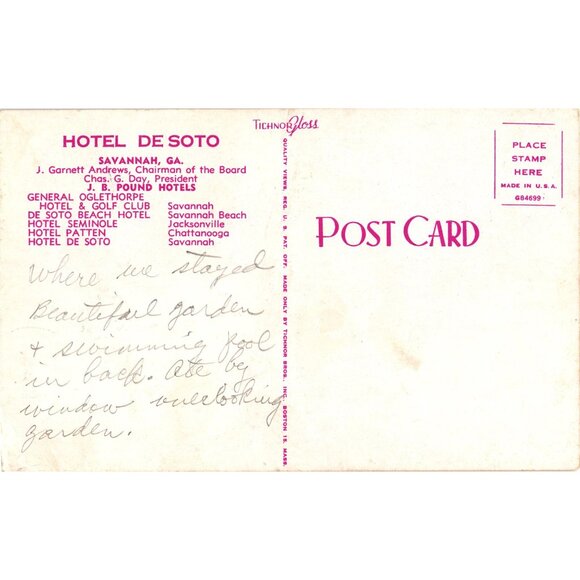 TICHNOR Gloss
HOTEL DE SOTO
SAVANNAH, GA.
J. Garnett Andrews, Chairman of the Board
Chas. G. Day, President
J. B. POUND HOTELS
GENERAL OGLETHORPE
HOTEL & GOLF CLUB Savannah
DE SOTO BEACH HOTEL Savannah Beach
HOTEL SEMINOLE Jacksonville
HOTEL PATTEN Chattanooga
HOTEL DE SOTO Savannah
Where we stayed
Beautiful garden
& swimming pool
in back. Ate by
window overlooking
garden.
QUALITY VIEWS. REG. U. S. PAT. OFF. MADE ONLY BY TICHNOR BROS., INC. BOSTON 15, MASS.
POST CARD
PLACE
STAMP
HERE
MADE IN U.S.A.
G84699